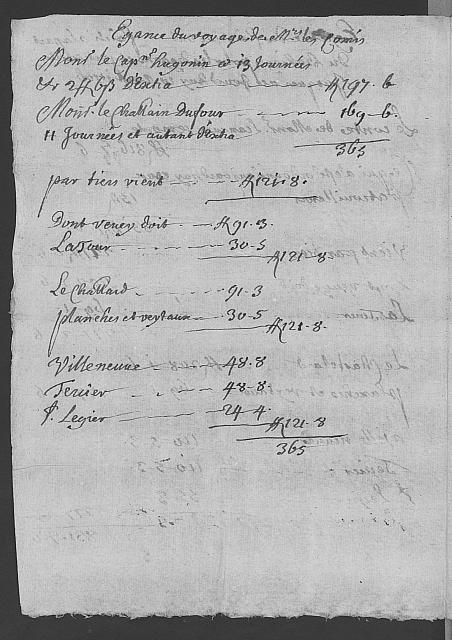 Egance du voyage de Mrs les Comis
Monsr le Capne hugonin a 13 Journées
et 2ff 6ß Dextra ff 197. 6
Monsr le Chatlain Dufour 169 - 6.
11 Journées et autant Dextra
365
par tiers vient ff 121. 8.
Dont vevey doit ff 91. 3.
La Tour 30 - 5
ff 121 - 8
Le Chatlard 91. 3
planches et veytaux 30 - 5
ff 121 - 8.
Villeneuve 48. 8
Tercier 48 - 8.
St Legier 24 - 4.
ff 121. 8
365